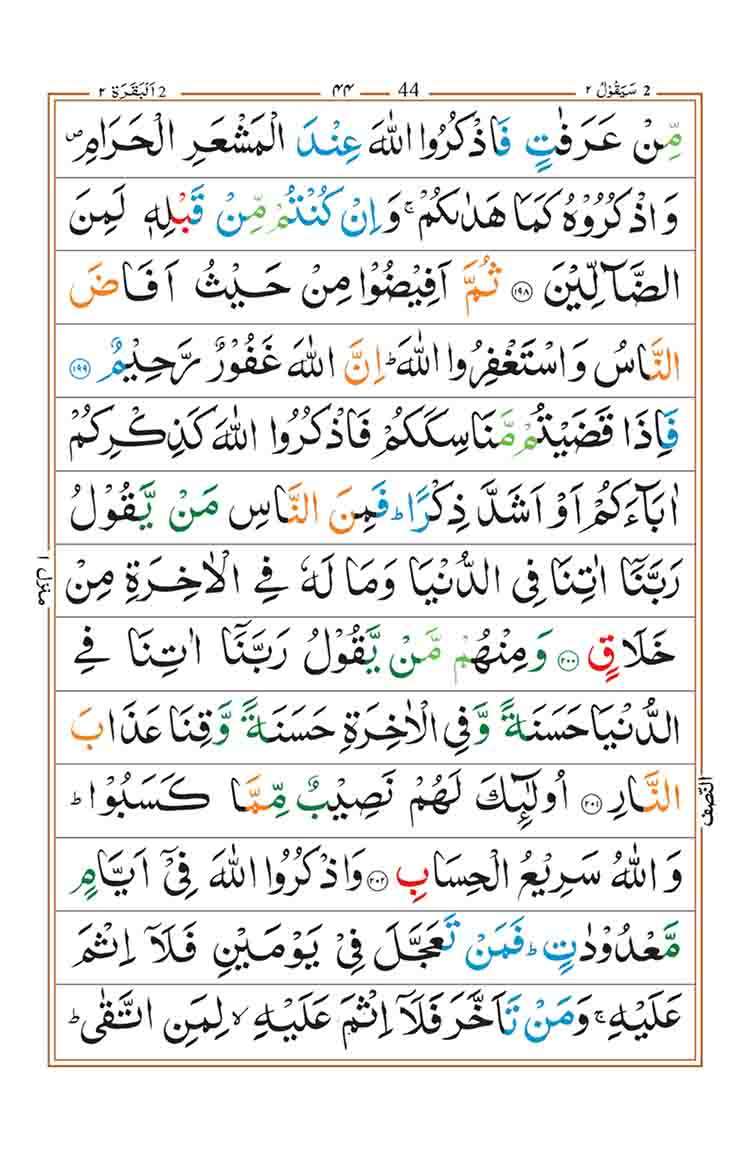 2 سَيَقُوْلُ ٢ 44 ۴۴ 2 اَلْبَقَرَة ٢
مِّنْ عَرَفٰتٍ فَاذْكُرُوا اللّٰهَ عِنْدَ الْمَشْعَرِ الْحَرَامِ ۪
وَاذْكُرُوْهُ كَمَا هَدٰىكُمْ ۚ وَاِنْ كُنْتُمْ مِّنْ قَبْلِهٖ لَمِنَ
الضَّآلِّيْنَ ﴿۱۹۸﴾ ثُمَّ اَفِيْضُوْا مِنْ حَيْثُ اَفَاضَ
النَّاسُ وَاسْتَغْفِرُوا اللّٰهَ ؕ اِنَّ اللّٰهَ غَفُوْرٌ رَّحِيْمٌ ﴿۱۹۹﴾
فَاِذَا قَضَيْتُمْ مَّنَاسِكَكُمْ فَاذْكُرُوا اللّٰهَ كَذِكْرِكُمْ
اٰبَآءَكُمْ اَوْ اَشَدَّ ذِكْرًا ؕ فَمِنَ النَّاسِ مَنْ يَّقُوْلُ
رَبَّنَآ اٰتِنَا فِى الدُّنْيَا وَمَا لَهٗ فِى الْاٰخِرَةِ مِنْ
خَلَاقٍ ﴿۲۰۰﴾ وَمِنْهُمْ مَّنْ يَّقُوْلُ رَبَّنَآ اٰتِنَا فِى
الدُّنْيَا حَسَنَةً وَّفِى الْاٰخِرَةِ حَسَنَةً وَّقِنَا عَذَابَ
النَّارِ ﴿۲۰۱﴾ اُولٰٓئِكَ لَهُمْ نَصِيْبٌ مِّمَّا كَسَبُوْا ؕ
وَاللّٰهُ سَرِيْعُ الْحِسَابِ ﴿۲۰۲﴾ وَاذْكُرُوا اللّٰهَ فِىْٓ اَيَّامٍ
مَّعْدُوْدٰتٍ ؕ فَمَنْ تَعَجَّلَ فِىْ يَوْمَيْنِ فَلَآ اِثْمَ
عَلَيْهِ ۚ وَمَنْ تَاَخَّرَ فَلَآ اِثْمَ عَلَيْهِ ۙ لِمَنِ اتَّقٰى ؕ
منزل ١
النّصف